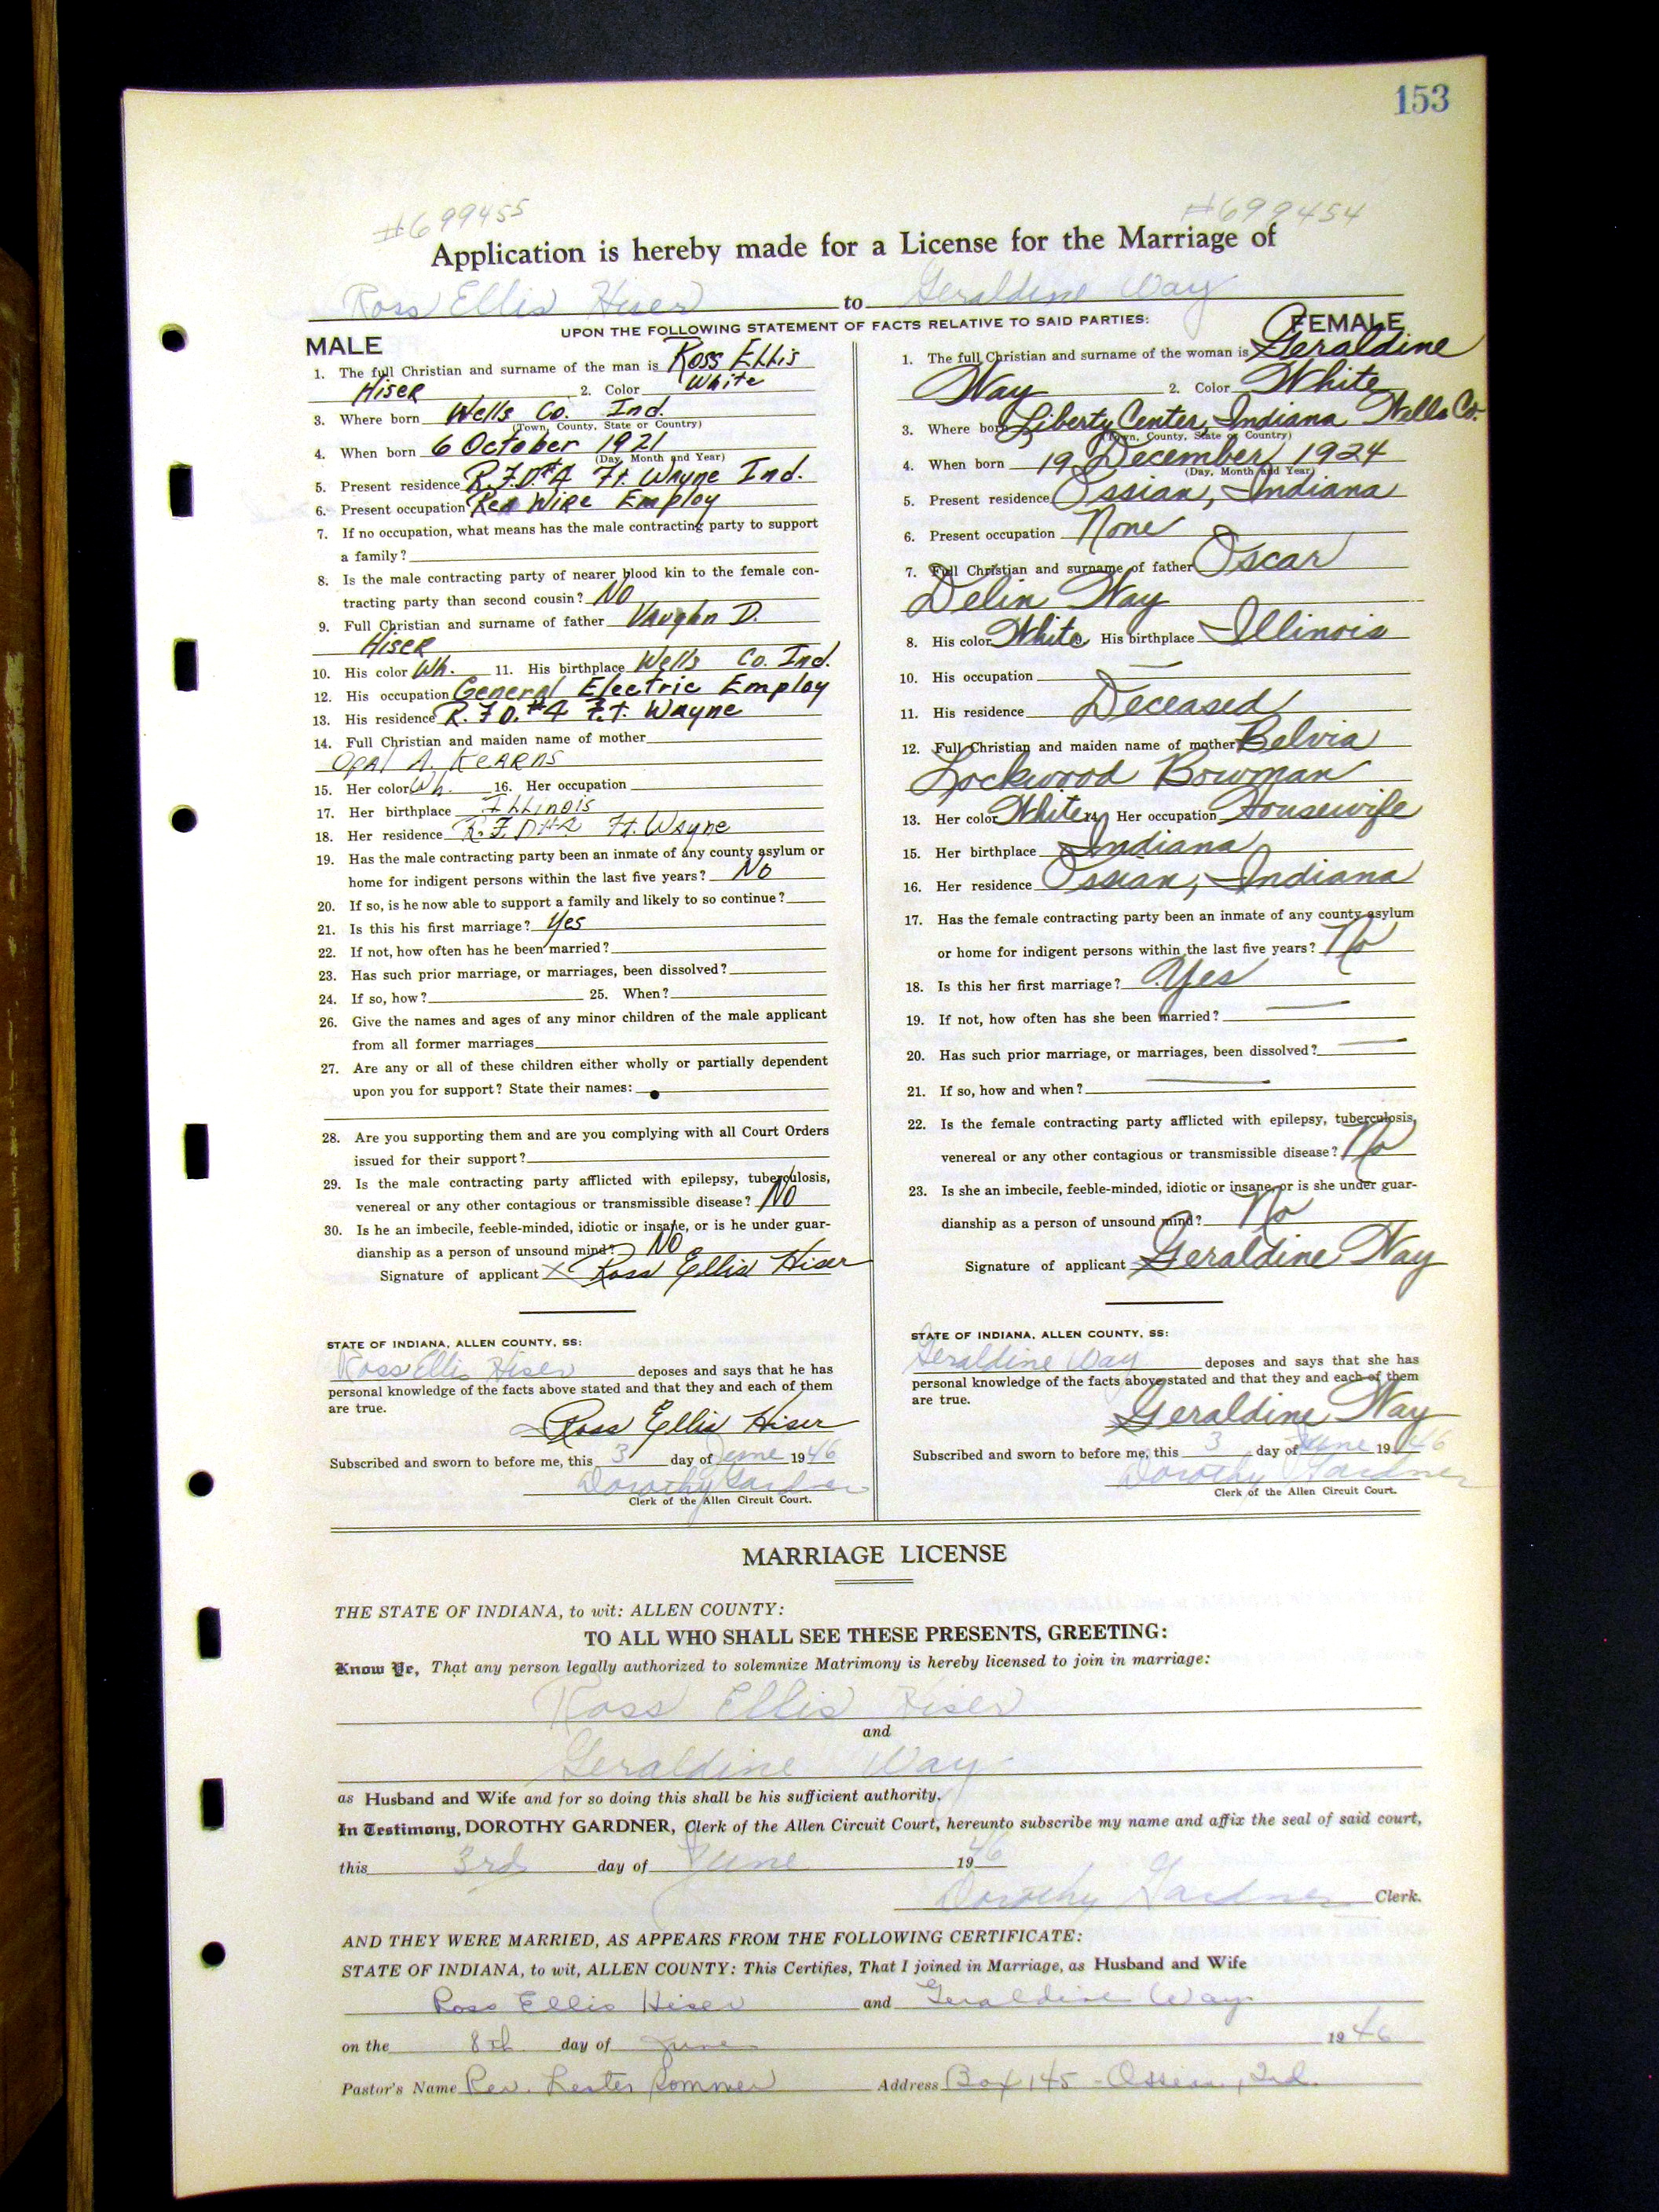 153
#699455 #699454
Application is hereby made for a License for the Marriage of
Ross Ellis Hiser to Geraldine Way
UPON THE FOLLOWING STATEMENT OF FACTS RELATIVE TO SAID PARTIES:
MALE
1. The full Christian and surname of the man is Ross Ellis
Hiser 2. Color White
3. Where born Wells Co. Ind.
(Town, County, State or Country)
4. When born 6 October 1921
(Day, Month and Year)
5. Present residence R.F.D.#4 Ft. Wayne Ind.
6. Present occupation Rea Wire Employ
7. If no occupation, what means has the male contracting party to support
a family?
8. Is the male contracting party of nearer blood kin to the female con-
tracting party than second cousin? No
9. Full Christian and surname of father Vaughn D.
Hiser
10. His color Wh. 11. His birthplace Wells Co. Ind.
12. His occupation General Electric Employ
13. His residence R.F.D.#4 Ft. Wayne
14. Full Christian and maiden name of mother
Opal A. Kearns
15. Her color Wh. 16. Her occupation
17. Her birthplace Illinois
18. Her residence R.F.D. Ft. Wayne
19. Has the male contracting party been an inmate of any county asylum or
home for indigent persons within the last five years? No
20. If so, is he now able to support a family and likely to so continue?
21. Is this his first marriage? Yes
22. If not, how often has he been married?
23. Has such prior marriage, or marriages, been dissolved?
24. If so, how? 25. When?
26. Give the names and ages of any minor children of the male applicant
from all former marriages
27. Are any or all of these children either wholly or partially dependent
upon you for support? State their names:
28. Are you supporting them and are you complying with all Court Orders
issued for their support?
29. Is the male contracting party afflicted with epilepsy, tuberculosis,
venereal or any other contagious or transmissible disease? No
30. Is he an imbecile, feeble-minded, idiotic or insane, or is he under guar-
dianship as a person of unsound mind? No
Signature of applicant X Ross Ellis Hiser
STATE OF INDIANA, ALLEN COUNTY, SS:
Ross Ellis Hiser deposes and says that he has
personal knowledge of the facts above stated and that they and each of them
are true.
Ross Ellis Hiser
Subscribed and sworn to before me, this 3 day of June 1946
Dorothy Gardner
Clerk of the Allen Circuit Court.
FEMALE
1. The full Christian and surname of the woman is Geraldine
Way 2. Color White
3. Where born Liberty Center, Indiana Wells Co.
(Town, County, State or Country)
4. When born 19 December 1924
(Day, Month and Year)
5. Present residence Ossian, Indiana
6. Present occupation None
7. Full Christian and surname of father Oscar
Delin Way
8. His color White His birthplace Illinois
10. His occupation —
11. His residence Deceased
12. Full Christian and maiden name of mother Belvia
Lockwood Bowman
13. Her color White 14. Her occupation Housewife
15. Her birthplace Indiana
16. Her residence Ossian, Indiana
17. Has the female contracting party been an inmate of any county asylum
or home for indigent persons within the last five years? No
18. Is this her first marriage? Yes
19. If not, how often has she been married? —
20. Has such prior marriage, or marriages, been dissolved? —
21. If so, how and when? —
22. Is the female contracting party afflicted with epilepsy, tuberculosis,
venereal or any other contagious or transmissible disease? No
23. Is she an imbecile, feeble-minded, idiotic or insane, or is she under guar-
dianship as a person of unsound mind? No
Signature of applicant Geraldine Way
STATE OF INDIANA, ALLEN COUNTY, SS:
Geraldine Way deposes and says that she has
personal knowledge of the facts above stated and that they and each of them
are true.
Geraldine Way
Subscribed and sworn to before me, this 3 day of June 1946
Dorothy Gardner
Clerk of the Allen Circuit Court.
MARRIAGE LICENSE
THE STATE OF INDIANA, to wit: ALLEN COUNTY:
TO ALL WHO SHALL SEE THESE PRESENTS, GREETING:
Know Ye, That any person legally authorized to solemnize Matrimony is hereby licensed to join in marriage:
Ross Ellis Hiser
and
Geraldine Way
as Husband and Wife and for so doing this shall be his sufficient authority.
In Testimony, DOROTHY GARDNER, Clerk of the Allen Circuit Court, hereunto subscribe my name and affix the seal of said court,
this 3rd day of June 1946
Dorothy Gardner Clerk.
AND THEY WERE MARRIED, AS APPEARS FROM THE FOLLOWING CERTIFICATE:
STATE OF INDIANA, to wit, ALLEN COUNTY: This Certifies, That I joined in Marriage, as Husband and Wife
Ross Ellis Hiser and Geraldine Way
on the 8th day of June 1946
Pastor's Name Rev. Lester Address Box 145 - Ossian, Ind.